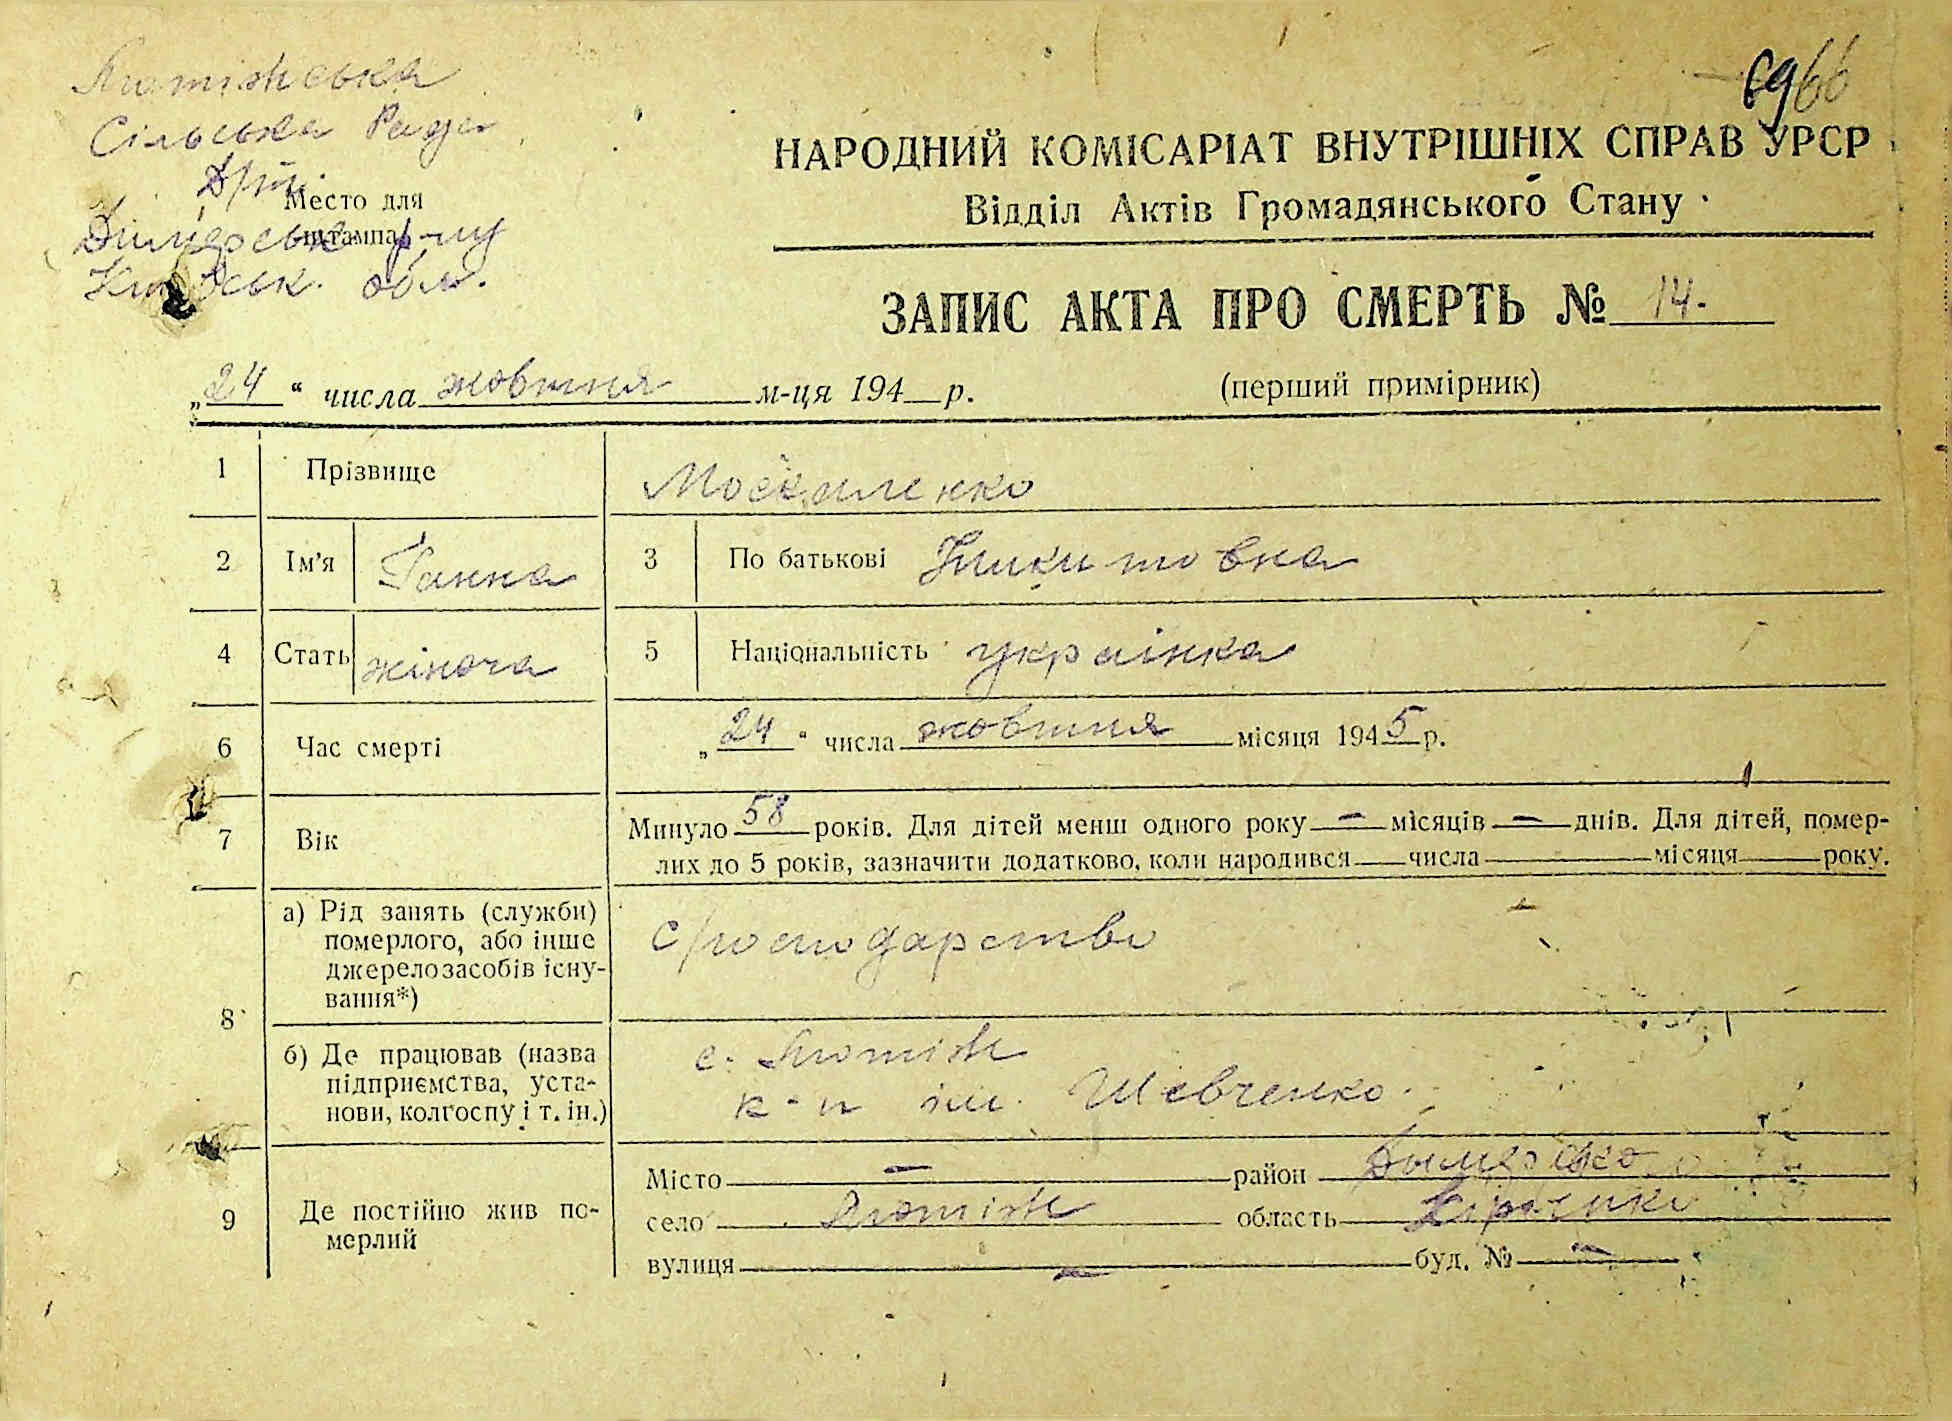 Лютіжська
Сільська Рада
Місто для
штампа
Димерськ. р-ну
Київськ. обл.
6966
НАРОДНИЙ КОМІСАРІАТ ВНУТРІШНІХ СПРАВ УРСР
Відділ Актів Громадянського Стану
ЗАПИС АКТА ПРО СМЕРТЬ № 14.
„24“ числа жовтня м-ця 194 р. (перший примірник)
1 Прізвище Москаленко
2 Ім'я Ганна 3 По батькові Никитовна
4 Стать жіноча 5 Національність українка
6 Час смерті „24“ числа жовтня місяця 1945 р.
7 Вік Минуло 58 років. Для дітей менш одного року — місяців — днів. Для дітей, помер-
лих до 5 років, зазначити додатково, коли народився числа місяця року.
8 а) Рід занять (служби) померлого, або інше джерело засобів існу-вання*) с/господарство
б) Де працював (назва підприємства, уста-нови, колгоспу і т. ін.) с. Лютіж
к-п ім. Шевченко.
9 Де постійно жив по-мерлий Місто — район Димерсько
село Лютіж область
вулиця — буд. № —